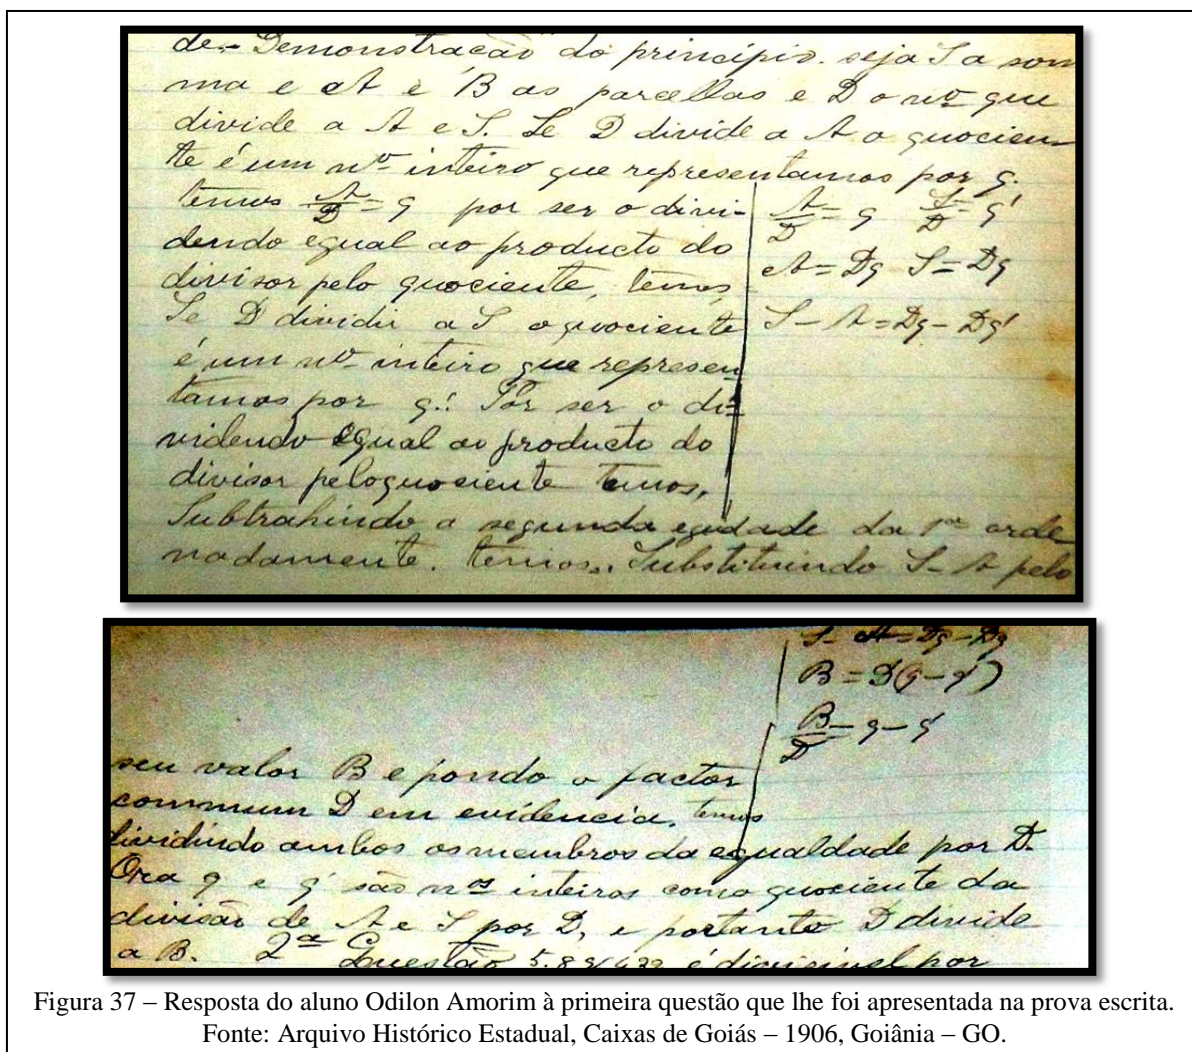 de- Demonstração do princípio. seja S a som
ma e A e B as parcellas e D o nº que
divide a A e S. Se D divide a A o quocien-
te é um nº inteiro que representamos por q.
temos A/D = q por ser o divi-
dendo egual ao producto do
divisor pelo quociente, temos
Se D dividir a S o quociente
é um nº inteiro que represen
tamos por q'. Por ser o di-
videndo egual ao producto do
divisor pelo quociente temos,
A/D = q S/D = q'
A = Dq S = Dq
S - A = Dq - Dq'
Subtrahindo a segunda egudade da 1ª orde
nadamente. temos. Substituindo S - A pelo
S - A = Dq - Dq
B = D(q - q')
B/D = q - q'
seu valor B e pondo o factor
commum D em evidencia, temos
dividindo ambos os membros da egualdade por D.
Ora q e q' são nos inteiros como quociente da
divisão de A e S por D, e portanto D divide
a B. 2ª Questão é divisivel por
Figura 37 – Resposta do aluno Odilon Amorim à primeira questão que lhe foi apresentada na prova escrita.
Fonte: Arquivo Histórico Estadual, Caixas de Goiás – 1906, Goiânia – GO.